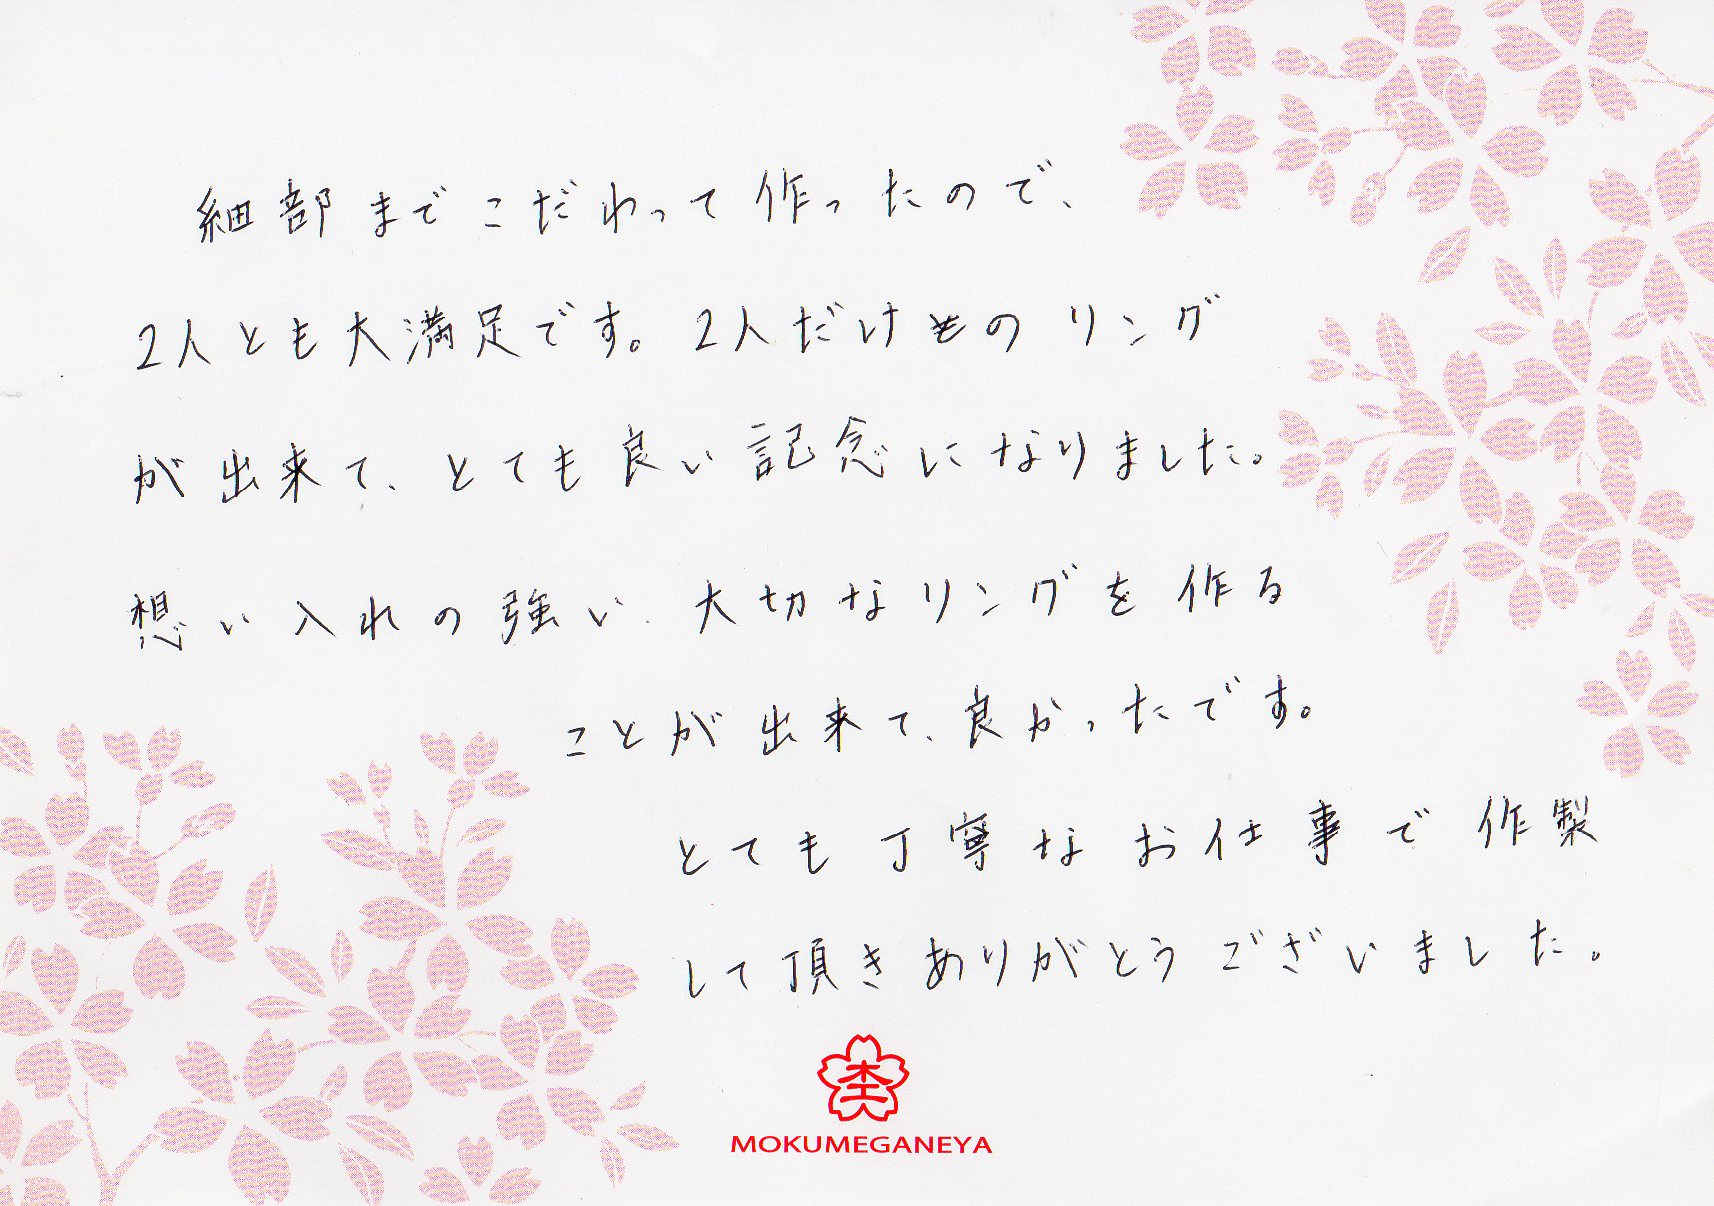 細部までこだわって作ったので、
2人とも大満足です。2人だけのリング
が出来て、とても良い記念になりました。
想い入れの強い、大切なリングを作る
ことが出来て、良かったです。
とても丁寧なお仕事で作製
して頂きありがとうございました。
MOKUMEGANEYA